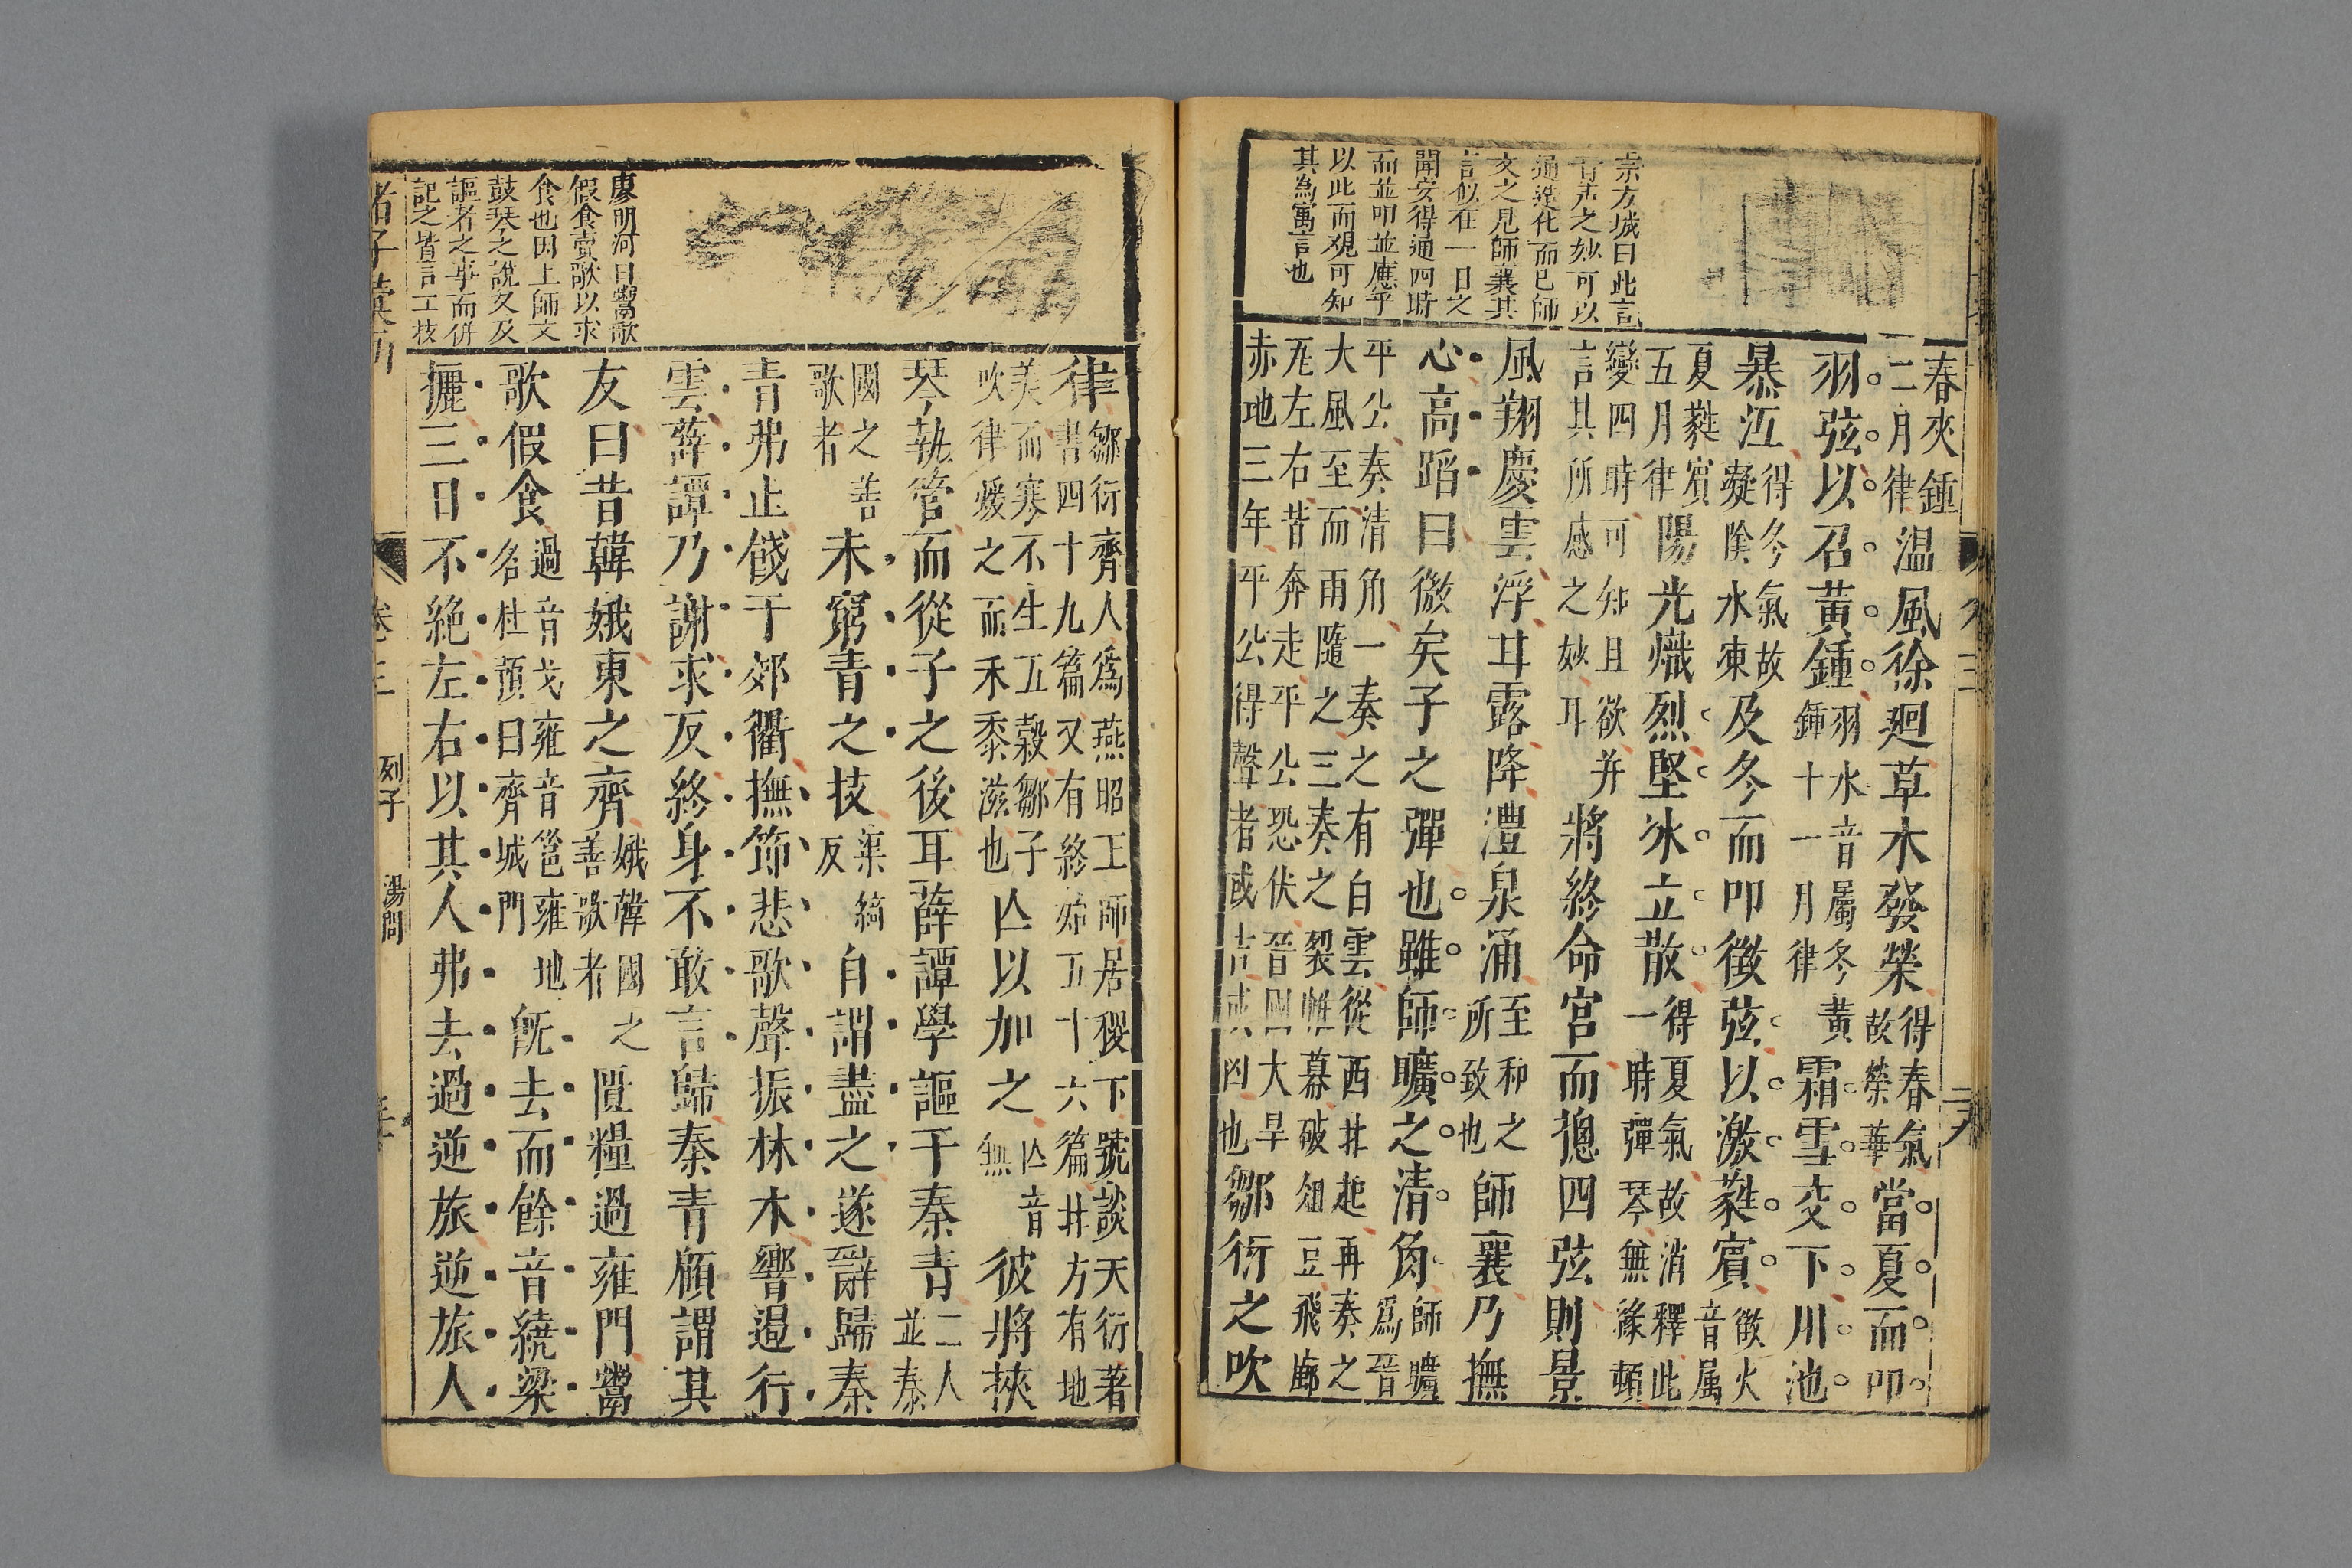 宗方城曰此言
音聲之妙可以
通造化而已師
文之見師襄其
言似在一日之
聞安得通四時
而並叩並應乎
以此而觀可知
其為寓言也
春夾鍾
二月律溫風徐廻草木發榮得春氣故榮華當夏而叩
羽弦以召黃鍾羽水音屬冬黃鍾十一月律霜雪交下川池
暴沍得冬氣故凝陰水凍及冬而叩徵弦以激蕤賓徵火音属
夏蕤賓五月律陽光熾烈堅冰立散得夏氣故消釋此一時彈琴無緣頓
變四時可知且欲并言其所感之妙耳將終命宮而摠四弦則景
風翔慶雲浮甘露降澧泉涌至和之所致也師襄乃撫
心高蹈曰微矣子之彈也雖師曠之清角師曠爲晉
平公奏清角一奏之有白雲從西北起再奏之大風至而雨隨之三奏之裂帷幕破俎豆飛廊
瓦左右皆奔走平公恐伏晉國大旱赤地三年平公得聲者或吉或凶也鄒衍之吹
律鄒衍齊人爲燕昭王師居稷下號談天衍著書四十九篇又有終始五十六篇北方有地
美而寒不生五穀鄒子吹律煖之而禾黍滋也亾以加之亾音無彼將挾
琴執管而從子之後耳薛譚學謳于秦青二人並秦
國之善歌者未窮青之技渠綺反自謂盡之遂辭歸秦
青弗止餞于郊衢撫節悲歌聲振林木響遏行
雲薛譚乃謝求反終身不敢言歸秦青顧謂其
友曰昔韓娥東之齊娥韓國之善歌者匱糧過雍門鬻
歌假食過音戈雍音邕雍地名杜預曰齊城門旣去而餘音繞梁
欐三日不絶左右以其人弗去過逆旅逆旅人
廖明河曰鬻歌
假食賣歌以求
食也因上師文
鼓琴之說又及
謳者之事而併
記之皆言工技
卷三 列子 湯問